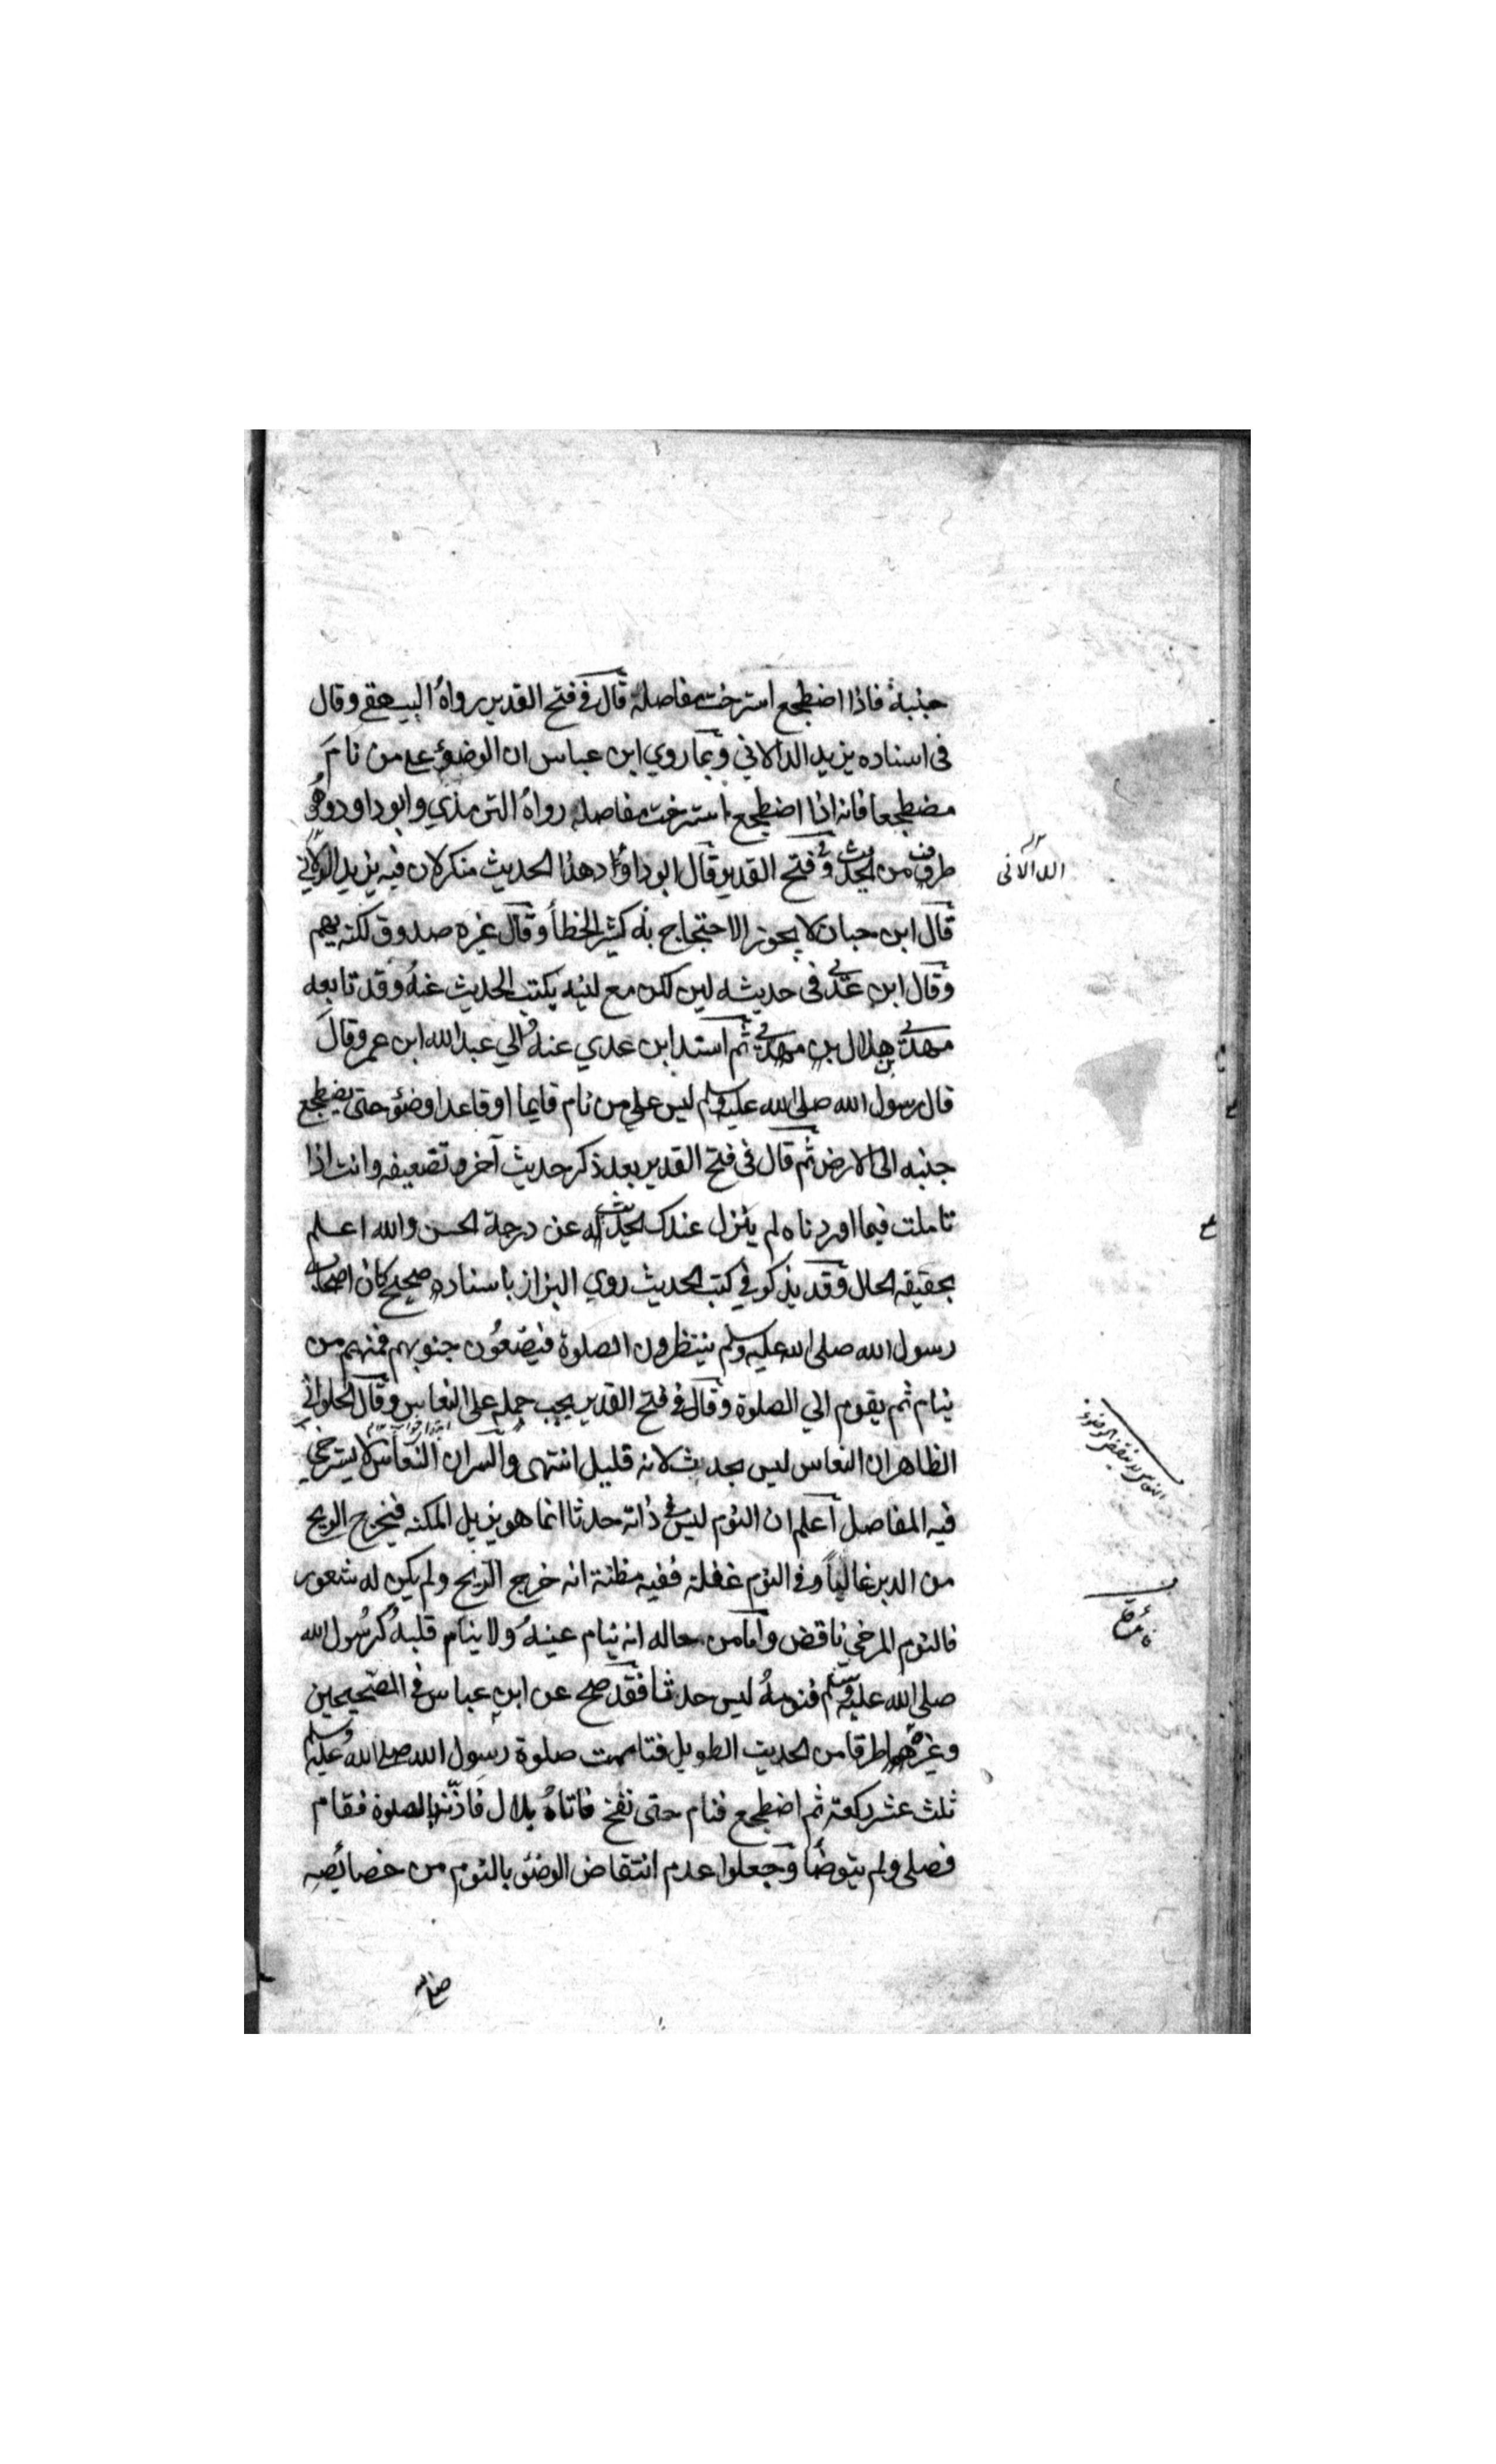 جنبه فاذا اضطجع استرخت مفاصله قال في فتح القدير رواه البيهقي وقال
في اسناده يزيد الدالاني وبما روي ابن عباس ان الوضوء على من نام
مضطجعا فانه اذا اضطجع استرخت مفاصله رواه الترمذي وابوداود وهو
طرف من الحديث وفي فتح القدير قال ابوداود هذا الحديث منكر لان فيه يزيد الدالاني
الدالانى
قال ابن حبان لا يجوز الاحتجاج به كثير الخطأ وقال غيره صدوق لكنه يهم
وقال ابن عدي في حديثه لين لكن مع لينه يكتب الحديث عنه وقد تابعه
مهدي بن هلال ثم اسند ابن عدي عنه الي عبدالله ابن عمر وقال
قال رسول الله صلى الله عليه وسلم ليس على من نام قايما او قاعدا وضوء حتى يضطجع
جنبه الى الارض ثم قال في فتح القدير بعد ذكر حديث آخر وتضعيفه وانت اذا
تاملت فيما اوردناه لم ينزل عندك الحديث عن درجة الحسن والله اعلم
بحقيقه الحال وقد يذكر في كتب الحديث روي البزاز باسناده صحيح كان اصحاب
رسول الله صلى الله عليه وسلم ينتظرون الصلوة فيضعون جنوبهم فمنهم من
ينام ثم يقوم الي الصلوة وقال في فتح القدير يجب حمله على النعاس وقال الحلواني
الظاهر ان النعاس ليس بحدث لانه قليل انتهى والسر ان النعاس لا يسترخي
النوم
فيه المفاصل اعلم ان النوم ليس في ذاته حدثا انما هو يزيل المكنه فيخرج الريح
من الدبر غالبا وفي النوم غفلة ففيه مظنة انه خرج الريح ولم يكن له شعور
فالنوم المرخي ناقض واما من حاله انه ينام عينه ولا ينام قلبه كرسول الله
صلى الله عليه وسلم فنومه ليس حدثا فقد صح عن ابن عباس في الصحيحين
وغيرهما طرقا من الحديث الطويل فتاممت صلوة رسول الله صلى الله عليه وسلم
ثلث عشر ركعة ثم اضطجع فنام حتى نفخ فاتاه بلال فاذنه بالصلوة فقام
فصلى ولم يتوضأ وجعلوا عدم انتقاض الوضوء بالنوم من خصائصه